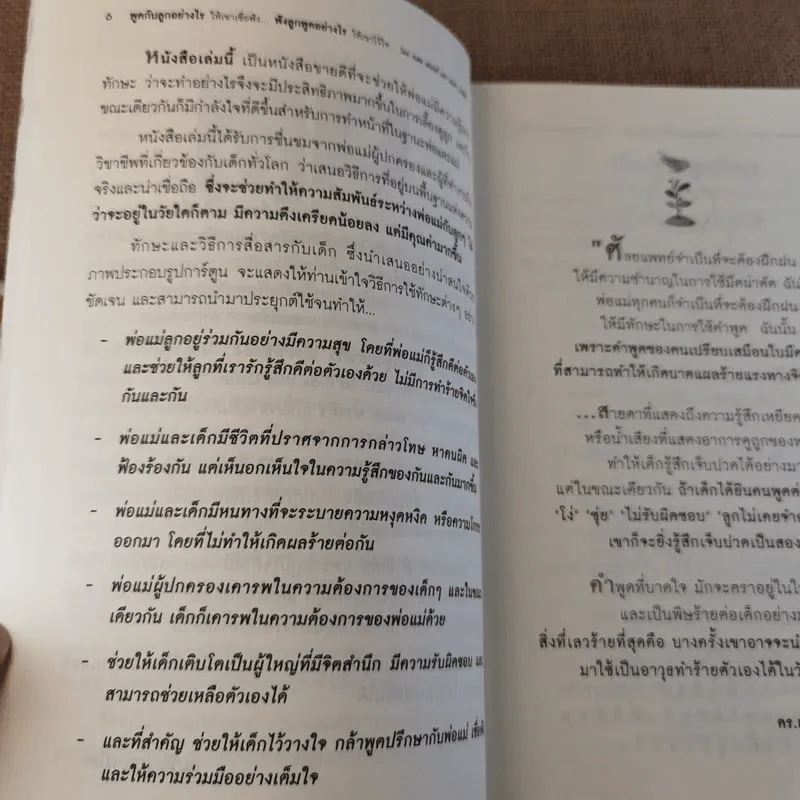 6 พูดกับลูกอย่างไร ให้เขาเชื่อฟัง... ฟังลูกพูดอย่างไร ให้เขาไว้ใจ
หนังสือเล่มนี้ เป็นหนังสือขายดีที่จะช่วยให้พ่อแม่มีความรู้และ
ทักษะ ว่าจะทำอย่างไรจึงจะมีประสิทธิภาพมากขึ้นในการเลี้ยงดูลูก
ขณะเดียวกันก็มีกำลังใจที่ดีขึ้นสำหรับการทำหน้าที่ในฐานะพ่อและแม่
หนังสือเล่มนี้ได้รับการชื่นชมจากพ่อแม่ผู้ปกครองและผู้
วิชาชีพที่เกี่ยวข้องกับเด็กทั่วโลก ว่าเสนอวิธีการที่อยู่บนพื้นฐานแห่งความ
จริงและน่าเชื่อถือ ซึ่งจะช่วยทำให้ความสัมพันธ์ระหว่างพ่อแม่กับลูกๆ ไม่
ว่าจะอยู่ในวัยใดก็ตาม มีความตึงเครียดน้อยลง แต่มีคุณค่ามากขึ้น
ทักษะและวิธีการสื่อสารกับเด็ก ซึ่งนำเสนออย่างน่าสนใจด้วย
ภาพประกอบรูปการ์ตูน จะแสดงให้ท่านเข้าใจวิธีการใช้ทักษะต่างๆ อย่าง
ชัดเจน และสามารถนำมาประยุกต์ใช้จนทำให้...
- พ่อแม่ลูกอยู่ร่วมกันอย่างมีความสุข โดยที่พ่อแม่ก็รู้สึกดีต่อตัวเอง
และช่วยให้ลูกที่เรารักรู้สึกดีต่อตัวเองด้วย ไม่มีการทำร้ายจิตใจซึ่ง
กันและกัน
- พ่อแม่และเด็กมีชีวิตที่ปราศจากการกล่าวโทษ หาคนผิด และ
ฟ้องร้องกัน แต่เห็นอกเห็นใจในความรู้สึกของกันและกันมากขึ้น
- พ่อแม่และเด็กมีหนทางที่จะระบายความหงุดหงิด หรือความโกรธ
ออกมา โดยที่ไม่ทำให้เกิดผลร้ายต่อกัน
- พ่อแม่ผู้ปกครองเคารพในความต้องการของเด็กๆ และในขณะ
เดียวกัน เด็กก็เคารพในความต้องการของพ่อแม่ด้วย
- ช่วยให้เด็กเติบโตเป็นผู้ใหญ่ที่มีจิตสำนึก มีความรับผิดชอบ และ
สามารถช่วยเหลือตัวเองได้
- และที่สำคัญ ช่วยให้เด็กไว้วางใจ กล้าพูดปรึกษากับพ่อแม่ เชื่อฟัง
และให้ความร่วมมืออย่างเต็มใจ
"ศัลยแพทย์จำเป็นที่จะต้องฝึกฝน
ให้มีความชำนาญในการใช้มีดผ่าตัด ฉัน
พ่อแม่ทุกคนก็จำเป็นที่จะต้องฝึกฝน
ให้มีทักษะในการใช้คำพูด ฉันนั้น
เพราะคำพูดของคนเปรียบเสมือนใบมีด
ที่สามารถทำให้เกิดบาดแผลร้ายแรงทางจิ
...สายตาที่แสดงถึงความรู้สึกเหยียด
หรือน้ำเสียงที่แสดงอาการดูถูกของพ
ทำให้เด็กรู้สึกเจ็บปวดได้อย่างมา
แต่ในขณะเดียวกัน ถ้าเด็กได้ยินคนพูดต่
'โง่' 'ซุ่ย' 'ไม่รับผิดชอบ' 'ลูกไม่เคยจำ
เขาก็จะยิ่งรู้สึกเจ็บปวดเป็นสอง
คำพูดที่บาดใจ มักจะตราอยู่ในใ
และเป็นพิษร้ายต่อเด็กอย่างม
สิ่งที่เลวร้ายที่สุดคือ บางครั้งเขาอาจจะนำ
มาใช้เป็นอาวุธทำร้ายตัวเองได้ในวั
ดร.